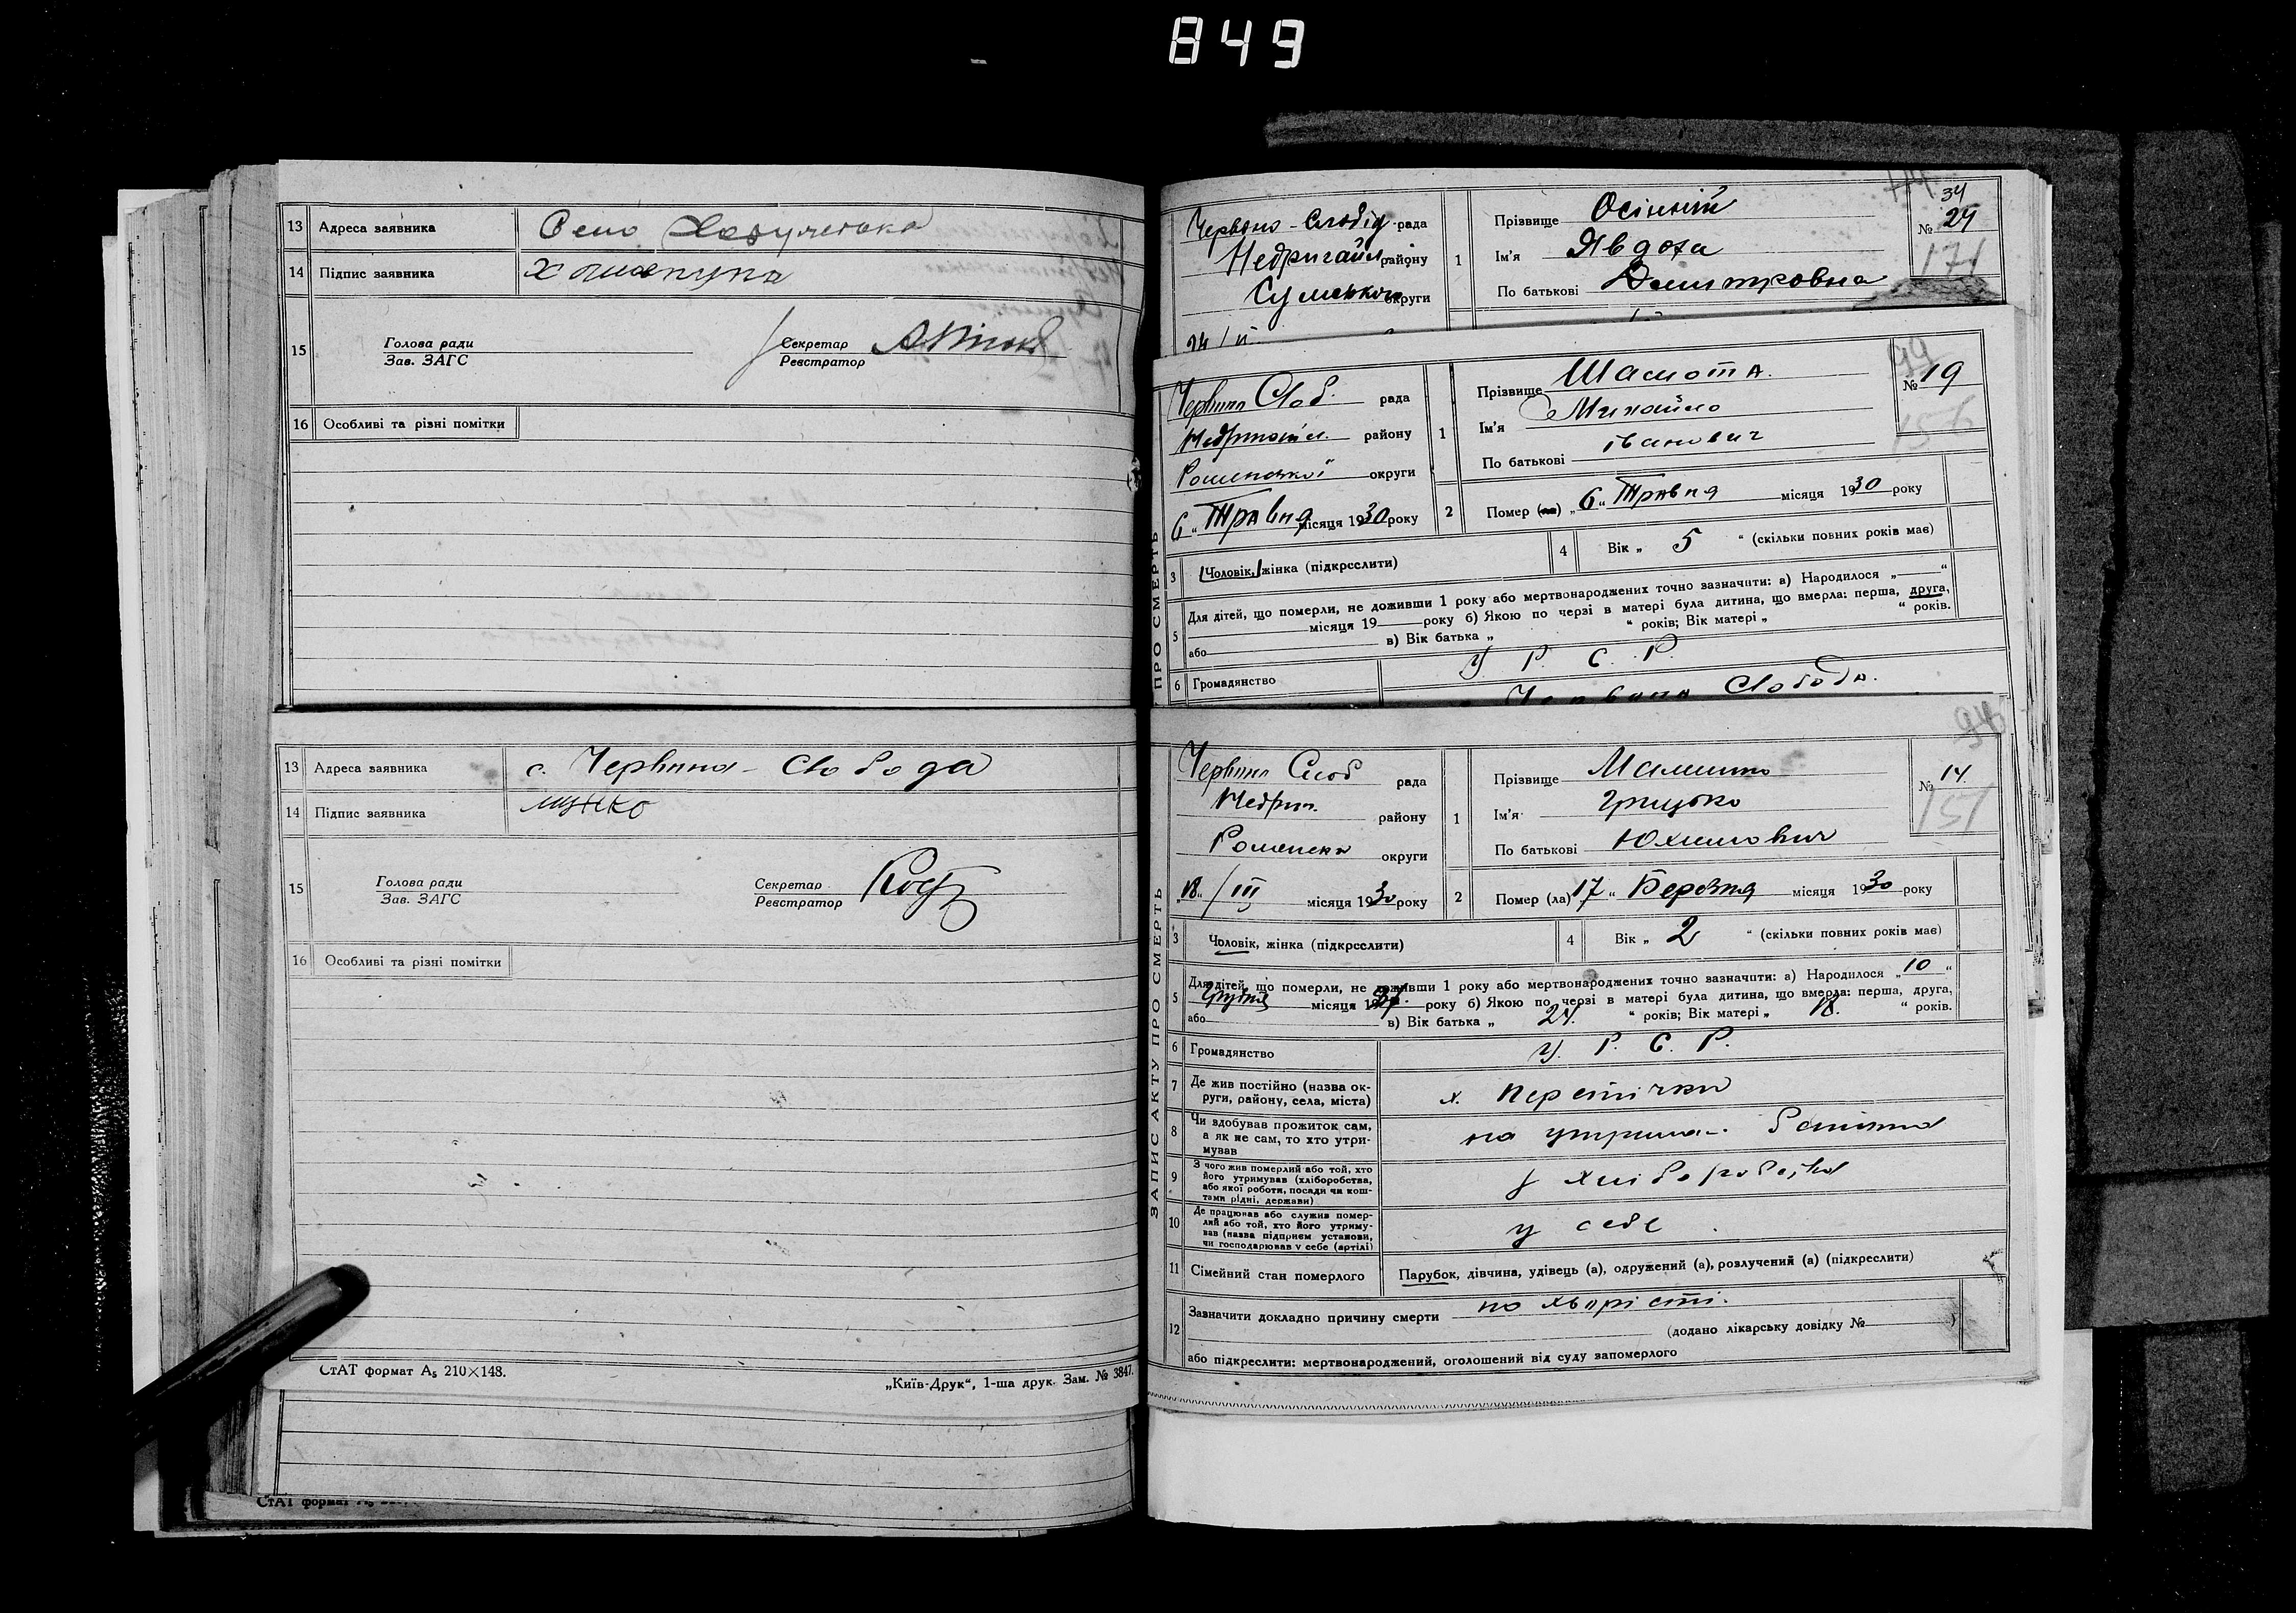 849
13 Адреса заявника Село
14 Підпис заявника
15 Голова ради
Зав. ЗАГС
Секретар
Реєстратор
16 Особливі та різні помітки
13 Адреса заявника с. Червона - Слобода
14 Підпис заявника
15 Голова ради
Зав. ЗАГС
Секретар
Реєстратор
16 Особливі та різні помітки
СтАТ формат А5 210×148.
„Київ-Друк“, 1-ша друк. Зам. № 3847.
СтАТ формат А5
Червоно - Слобід рада
Недригайл. району
Сумської округи
24 / II
1 Прізвище Осінній
Ім'я Явдоха
По батькові Дмитровна
34
№ 24
171
ПРО СМЕРТЬ
Червоно Слоб. рада
Недригайл. району
Роменської округи
6 „ Травня місяця 1930 року
1 Прізвище Шамота.
Ім'я Михайло
По батькові іванович
99
№ 19
156
2 Помер (ла) „ 6 “ Травня місяця 1930 року
3 Чоловік, жінка (підкреслити)
4 Вік „ 5 “ (скільки повних років має)
5 Для дітей, що померли, не доживши 1 року або мертвонароджених точно зазначити: а) Народилося „ “
місяця 19 року б) Якою по черзі в матері була дитина, що вмерла: перша, друга,
або в) Вік батька „ “ років; Вік матері „ “ років.
6 Громадянство У. Р. С. Р.
Червона Слобода.
ЗАПИС АКТУ ПРО СМЕРТЬ
Червоно Слоб рада
Недриг. району
Роменська округи
„18“ / III місяця 1930 року
1 Прізвище
Ім'я Грицько
По батькові Юхимович
94
№ 14
151
2 Помер (ла) 17 “ Березня місяця 1930 року
3 Чоловік, жінка (підкреслити)
4 Вік „ 2 “ (скільки повних років має)
5 Для дітей, що померли, не доживши 1 року або мертвонароджених точно зазначити: а) Народилося „ 10 “
Грудня місяця 19 року б) Якою по черзі в матері була дитина, що вмерла: перша, друга,
або в) Вік батька „ 24. “ років; Вік матері „ 18. “ років.
6 Громадянство У. Р. С. Р.
7 Де жив постійно (назва ок-
руги, району, села, міста) х.
8 Чи здобував прожиток сам,
а як не сам, то хто утри-
мував на утриман. батька
9 З чого жив померлий або той, хто
його утримував (хліборобства,
або якої роботи, посади чи кош-
тами рідні, держави) з хліборобства
10 Де працював або служив помер-
лий або той, хто його утриму-
вав (назва підприєм установи,
чи господарював у себе (артілі) у себе
11 Сімейний стан померлого Парубок, дівчина, удівець (а), одружений (а), розлучений (а) (підкреслити)
12 Зазначити докладно причину смерти по хворісті.
(додано лікарську довідку № )
або підкреслити: мертвонароджений, оголошений від суду запомерлого